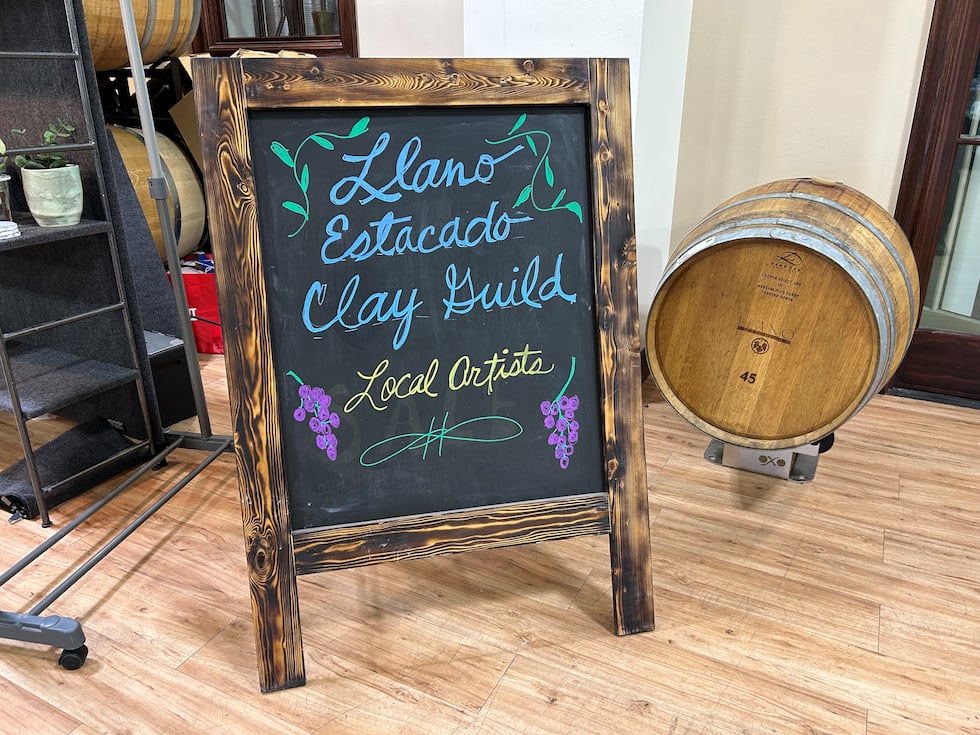 Llano
Estacado
Clay Guild
Local Artists
LLANO
45
OXO